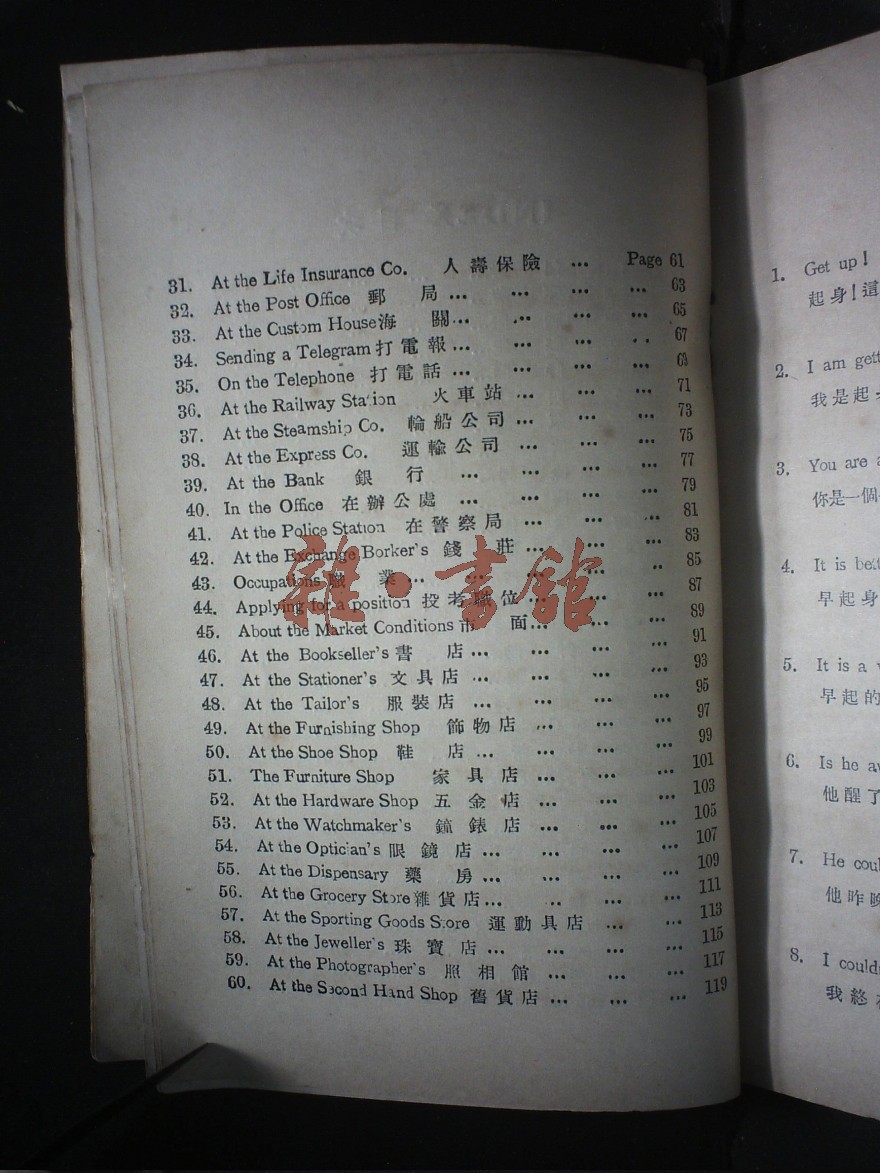 31. At the Life Insurance Co. 人壽保險 ... Page 61
32. At the Post Office 郵局 ... ... ... 63
33. At the Custom House 海關 ... ... ... 65
34. Sending a Telegram 打電報 ... ... .. 67
35. On the Telephone 打電話 ... ... ... 69
36. At the Railway Station 火車站 ... ... ... 71
37. At the Steamship Co. 輪船公司 ... ... ... 73
38. At the Express Co. 運輸公司 ... ... ... 75
39. At the Bank 銀行 ... ... ... 77
40. In the Office 在辦公處 ... ... ... 79
41. At the Police Station 在警察局 ... ... .. 81
42. At the Exchange Borker's 錢莊 ... ... ... 83
43. Occupations 職業 ... ... ... .. 85
44. Applying for a position 投考職位 ... ... ... 87
45. About the Market Conditions 市面 ... ... ... 89
46. At the Bookseller's 書店 ... ... ... ... 91
47. At the Stationer's 文具店 ... ... ... .. 93
48. At the Tailor's 服裝店 ... ... ... 95
49. At the Furnishing Shop 飾物店 ... ... ... 97
50. At the Shoe Shop 鞋店 ... ... ... 99
51. The Furniture Shop 家具店 ... ... ... 101
52. At the Hardware Shop 五金店 ... ... ... 103
53. At the Watchmaker's 鐘錶店 ... ... ... 105
54. At the Optician's 眼鏡店 ... ... ... ... 107
55. At the Dispensary 藥房 ... ... ... ... 109
56. At the Grocery Store 雜貨店 ... .. ... ... 111
57. At the Sporting Goods Store 運動具店 ... ... 113
58. At the Jeweller's 珠寶店 ... ... ... ... 115
59. At the Photographer's 照相館 ... ... ... 117
60. At the Second Hand Shop 舊貨店 ... ... ... 119
雜·書館
1. Get up!
起身!這
2. I am
我是起
3. You are
你是一個
4. It is
早起身
5. It is a
早起的
6. Is he
他醒了
7. He
他昨晚
8. I
我終